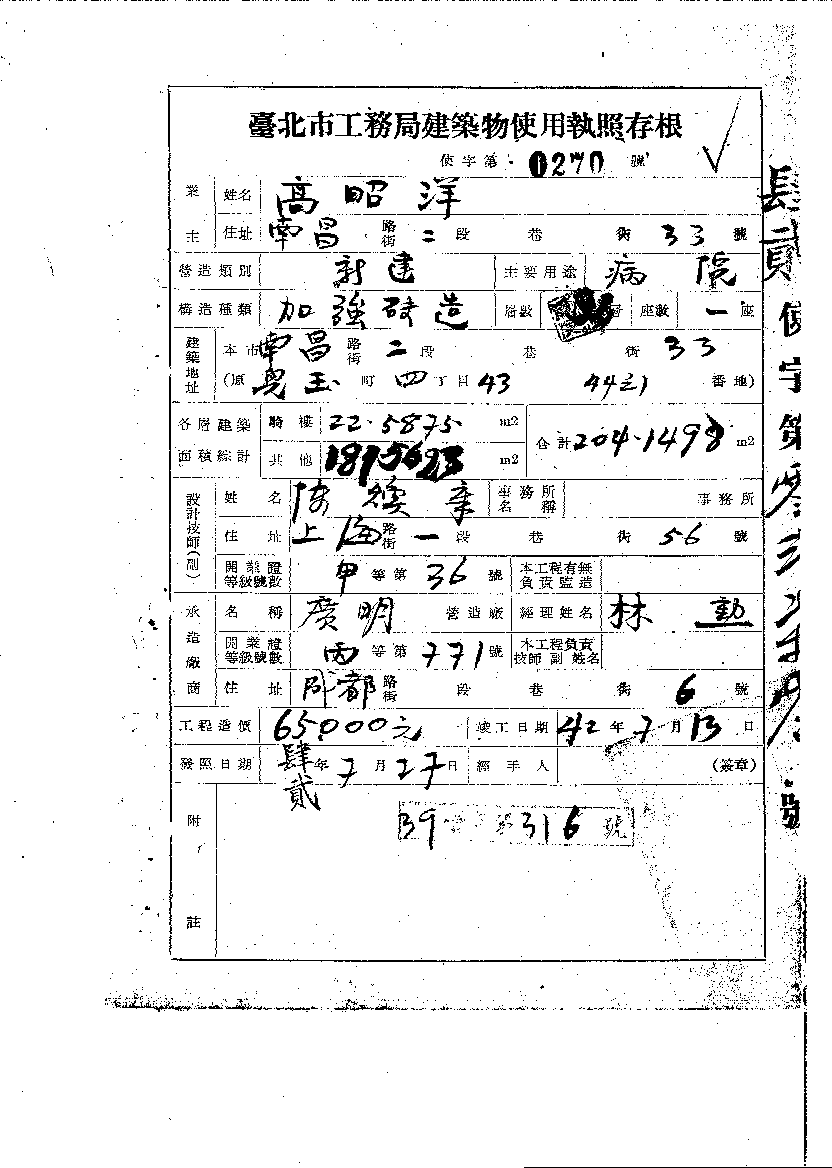 臺北市工務局建築物使用執照存根
使字第 0270 號
業主 姓名 高昭洋
住址 南昌路街二段 巷 街 33 號
營造類別 新建 主要用途 病院
構造種類 加強磚造 層數 層 座數 一座
建築地址 本市南昌路街二段 巷 街 33
(原兒玉町四丁目43 44之1 番地)
各層建築面積綜計 騎樓 22.5875 m2 合計 204.1498 m2
其他 m2
設計技師(副) 姓名 陳煥章 事務所名稱 事務所
住址 上海路街一段 巷 街 56 號
開業證等級號數 甲等第 36 號 本工程有無負責監造
承造廠商 名稱 廣明營造廠 經理姓名 林勤
開業證等級號數 丙等第 771 號 本工程負責技師副姓名
住址 成都路街 段 巷 街 6 號
工程造價 65,000元 竣工日期 42年7月13日
發照日期 肆貳年7月27日 經手人 (簽章)
附註
39 第316號
肆貳使字第零 號